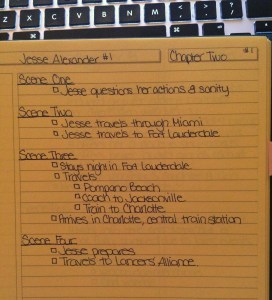 Jesse Alexander #1
Chapter Two
#1
Scene One
Jesse questions her actions & sanity
Scene Two
Jesse travels through Miami
Jesse travels to Fort Lauderdale
Scene Three
Stays night in Fort Lauderdale
Travels
Pompano Beach
Coach to Jacksonville
Train to Charlotte
Arrives in Charlotte, central train station
Scene Four
Jesse prepares
Travels to Lancers Alliance